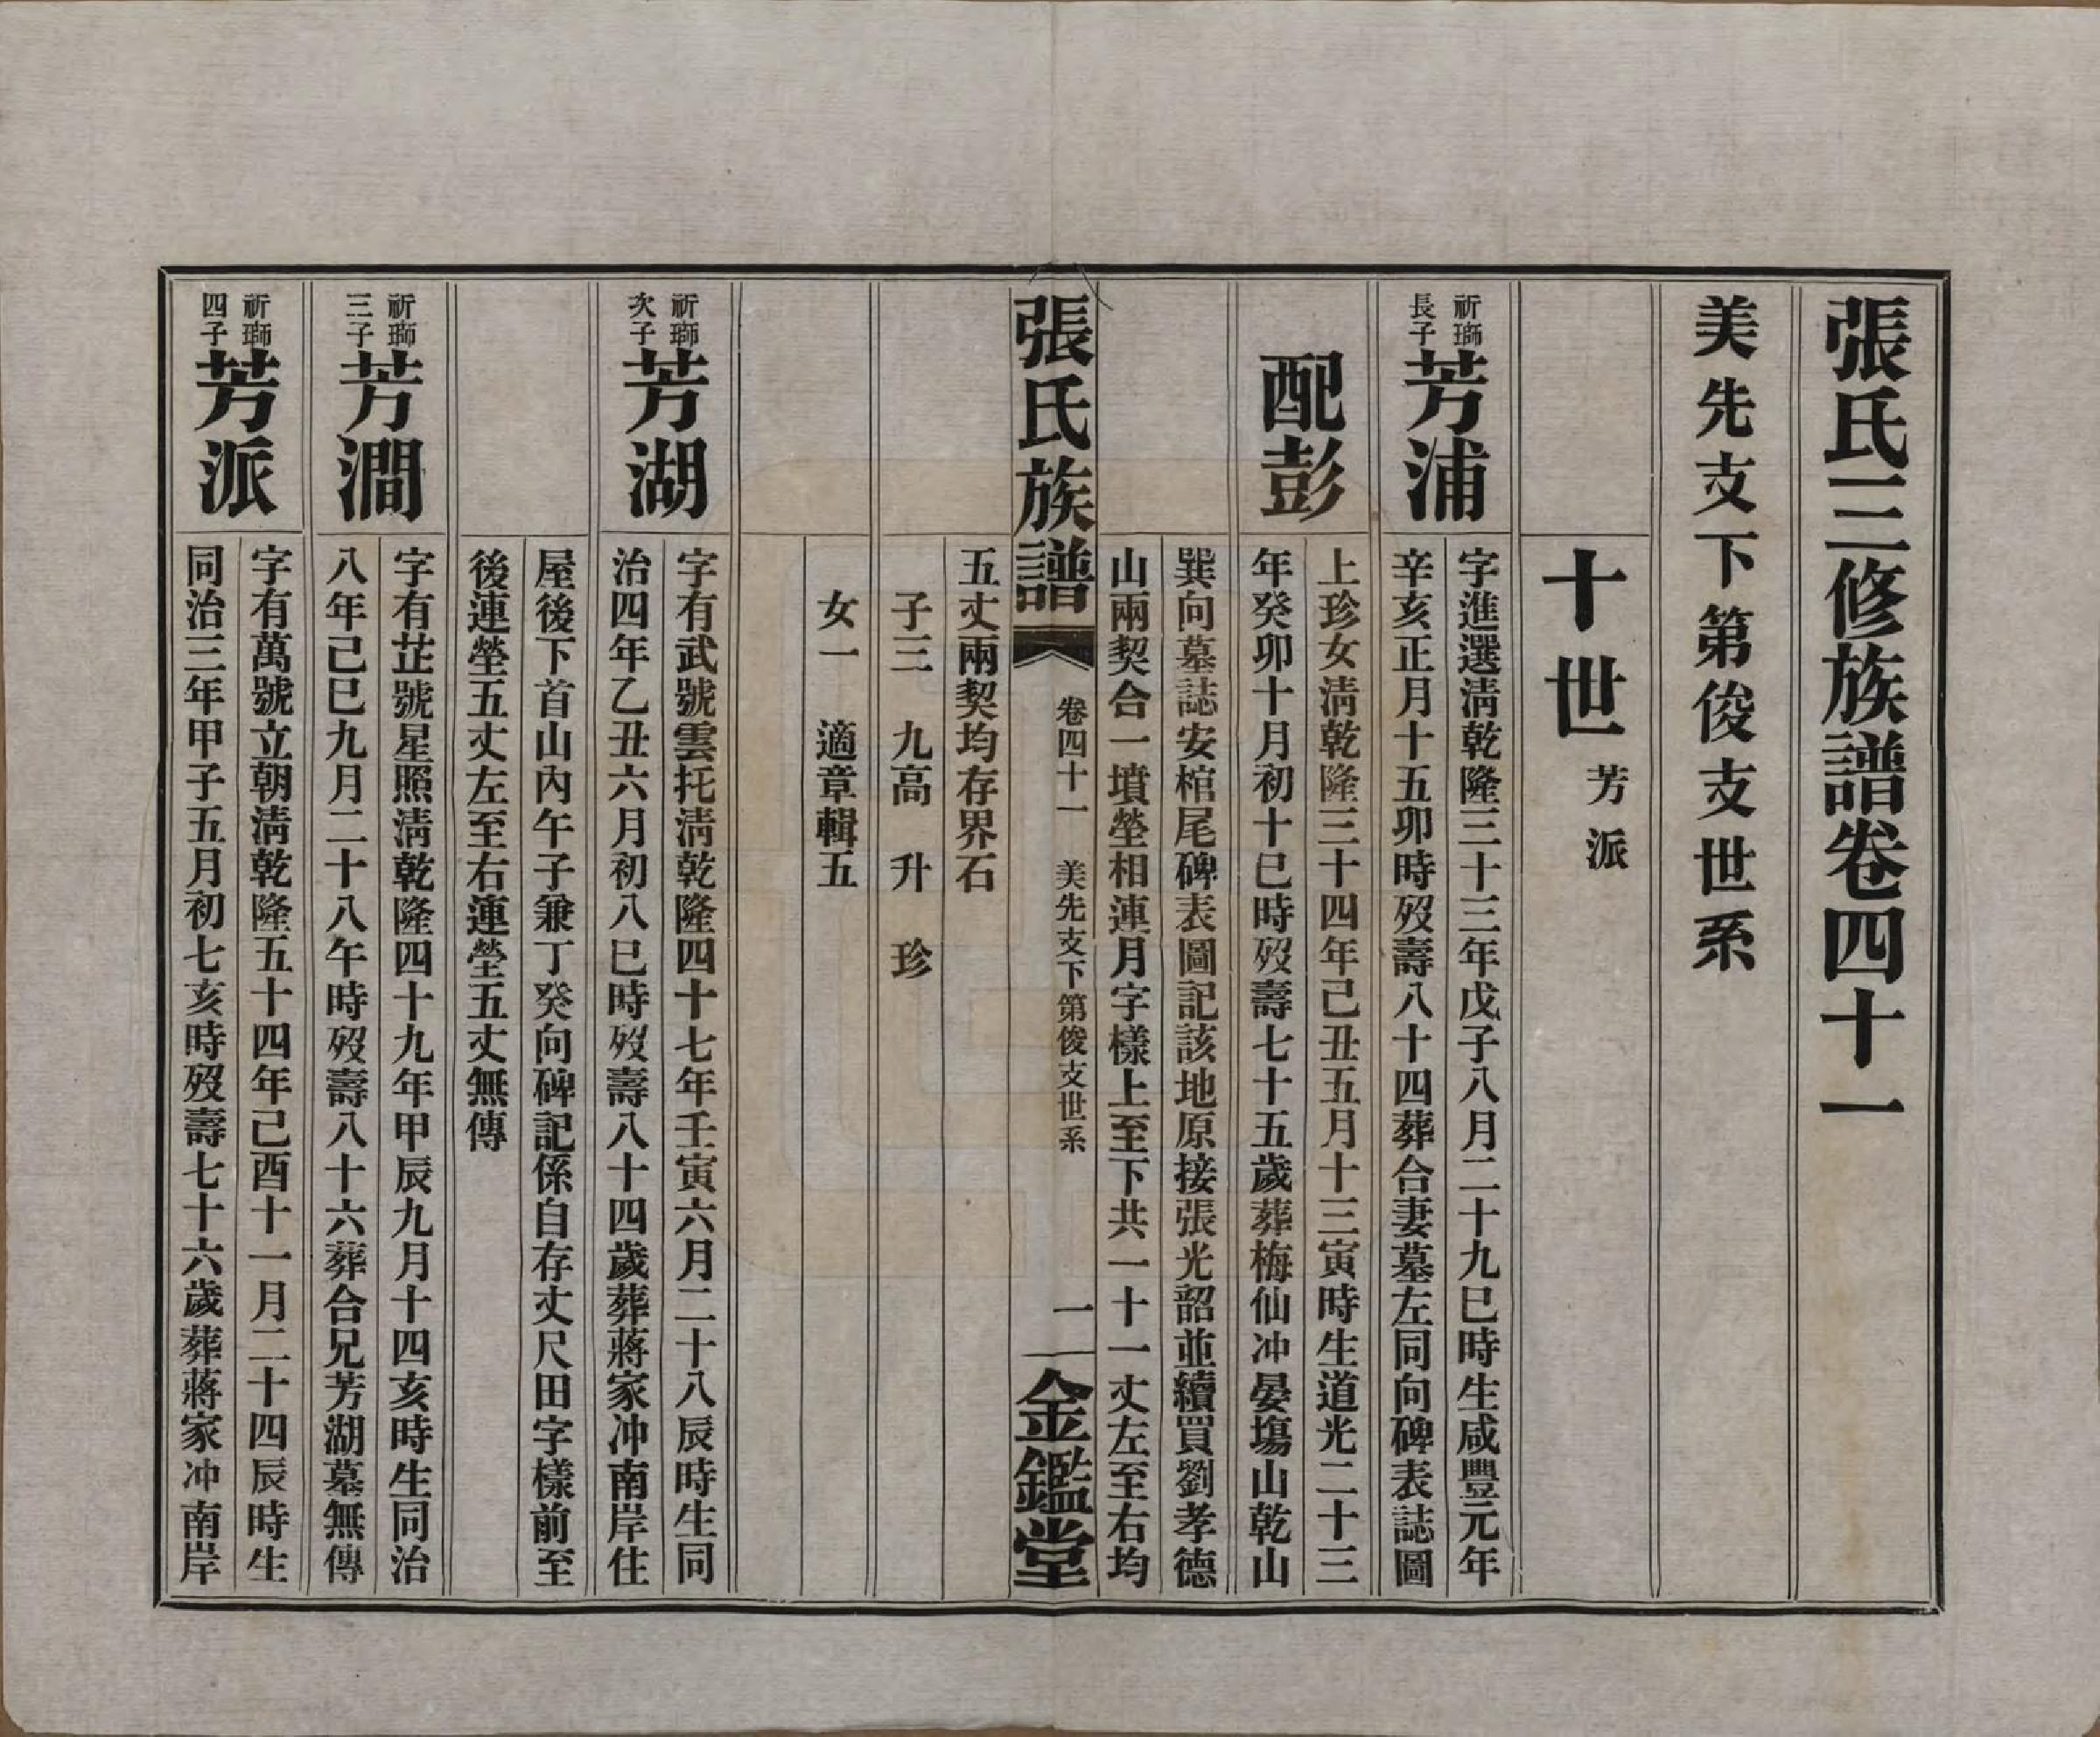 張氏三修族譜卷四十一
美先支下第俊支世系
十世 芳派
祈瑡長子
芳浦
字進選淸乾隆三十三年戊子八月二十九巳時生咸豐元年
辛亥正月十五卯時歿壽八十四葬合妻墓左同向碑表誌圖
配彭
上珍女淸乾隆三十四年己丑五月十三寅時生道光二十三
年癸卯十月初十巳時歿壽七十五歲葬梅仙冲晏塲山乾山
巽向墓誌安棺尾碑表圖記該地原接張光韶並續買劉孝德
山兩契合一墳塋相連月字樣上至下共一十一丈左至右均
張氏族譜
卷四十一 美先支下第俊支世系
一
金鑑堂
五丈兩契均存界石
子三 九高 升 珍
女一 適章輯五
祈瑡次子
芳湖
字有武號雲托淸乾隆四十七年壬寅六月二十八辰時生同
治四年乙丑六月初八巳時歿壽八十四歲葬蔣家冲南岸住
屋後下首山內午子兼丁癸向碑記係自存丈尺田字樣前至
後連塋五丈左至右連塋五丈無傳
祈瑡三子
芳澗
字有芷號星照淸乾隆四十九年甲辰九月十四亥時生同治
八年己巳九月二十八午時歿壽八十六葬合兄芳湖墓無傳
祈瑡四子
芳派
字有萬號立朝淸乾隆五十四年己酉十一月二十四辰時生
同治三年甲子五月初七亥時歿壽七十六歲葬蔣家冲南岸